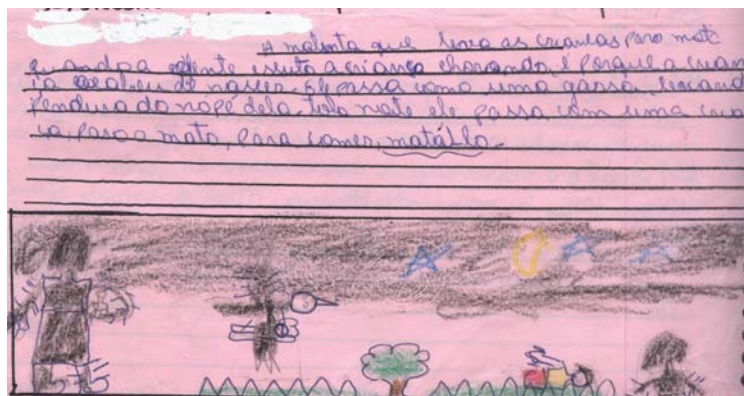 A matinta que leva as crianças para mata
quando a gente escuta a criança chorando, é porque a crian
ça acabou de nascer. Ele passa como uma garsa, levando
Pendurado no pé dela. toda noite ele passa com uma cria
ça, para a mata, para comer, matállo.